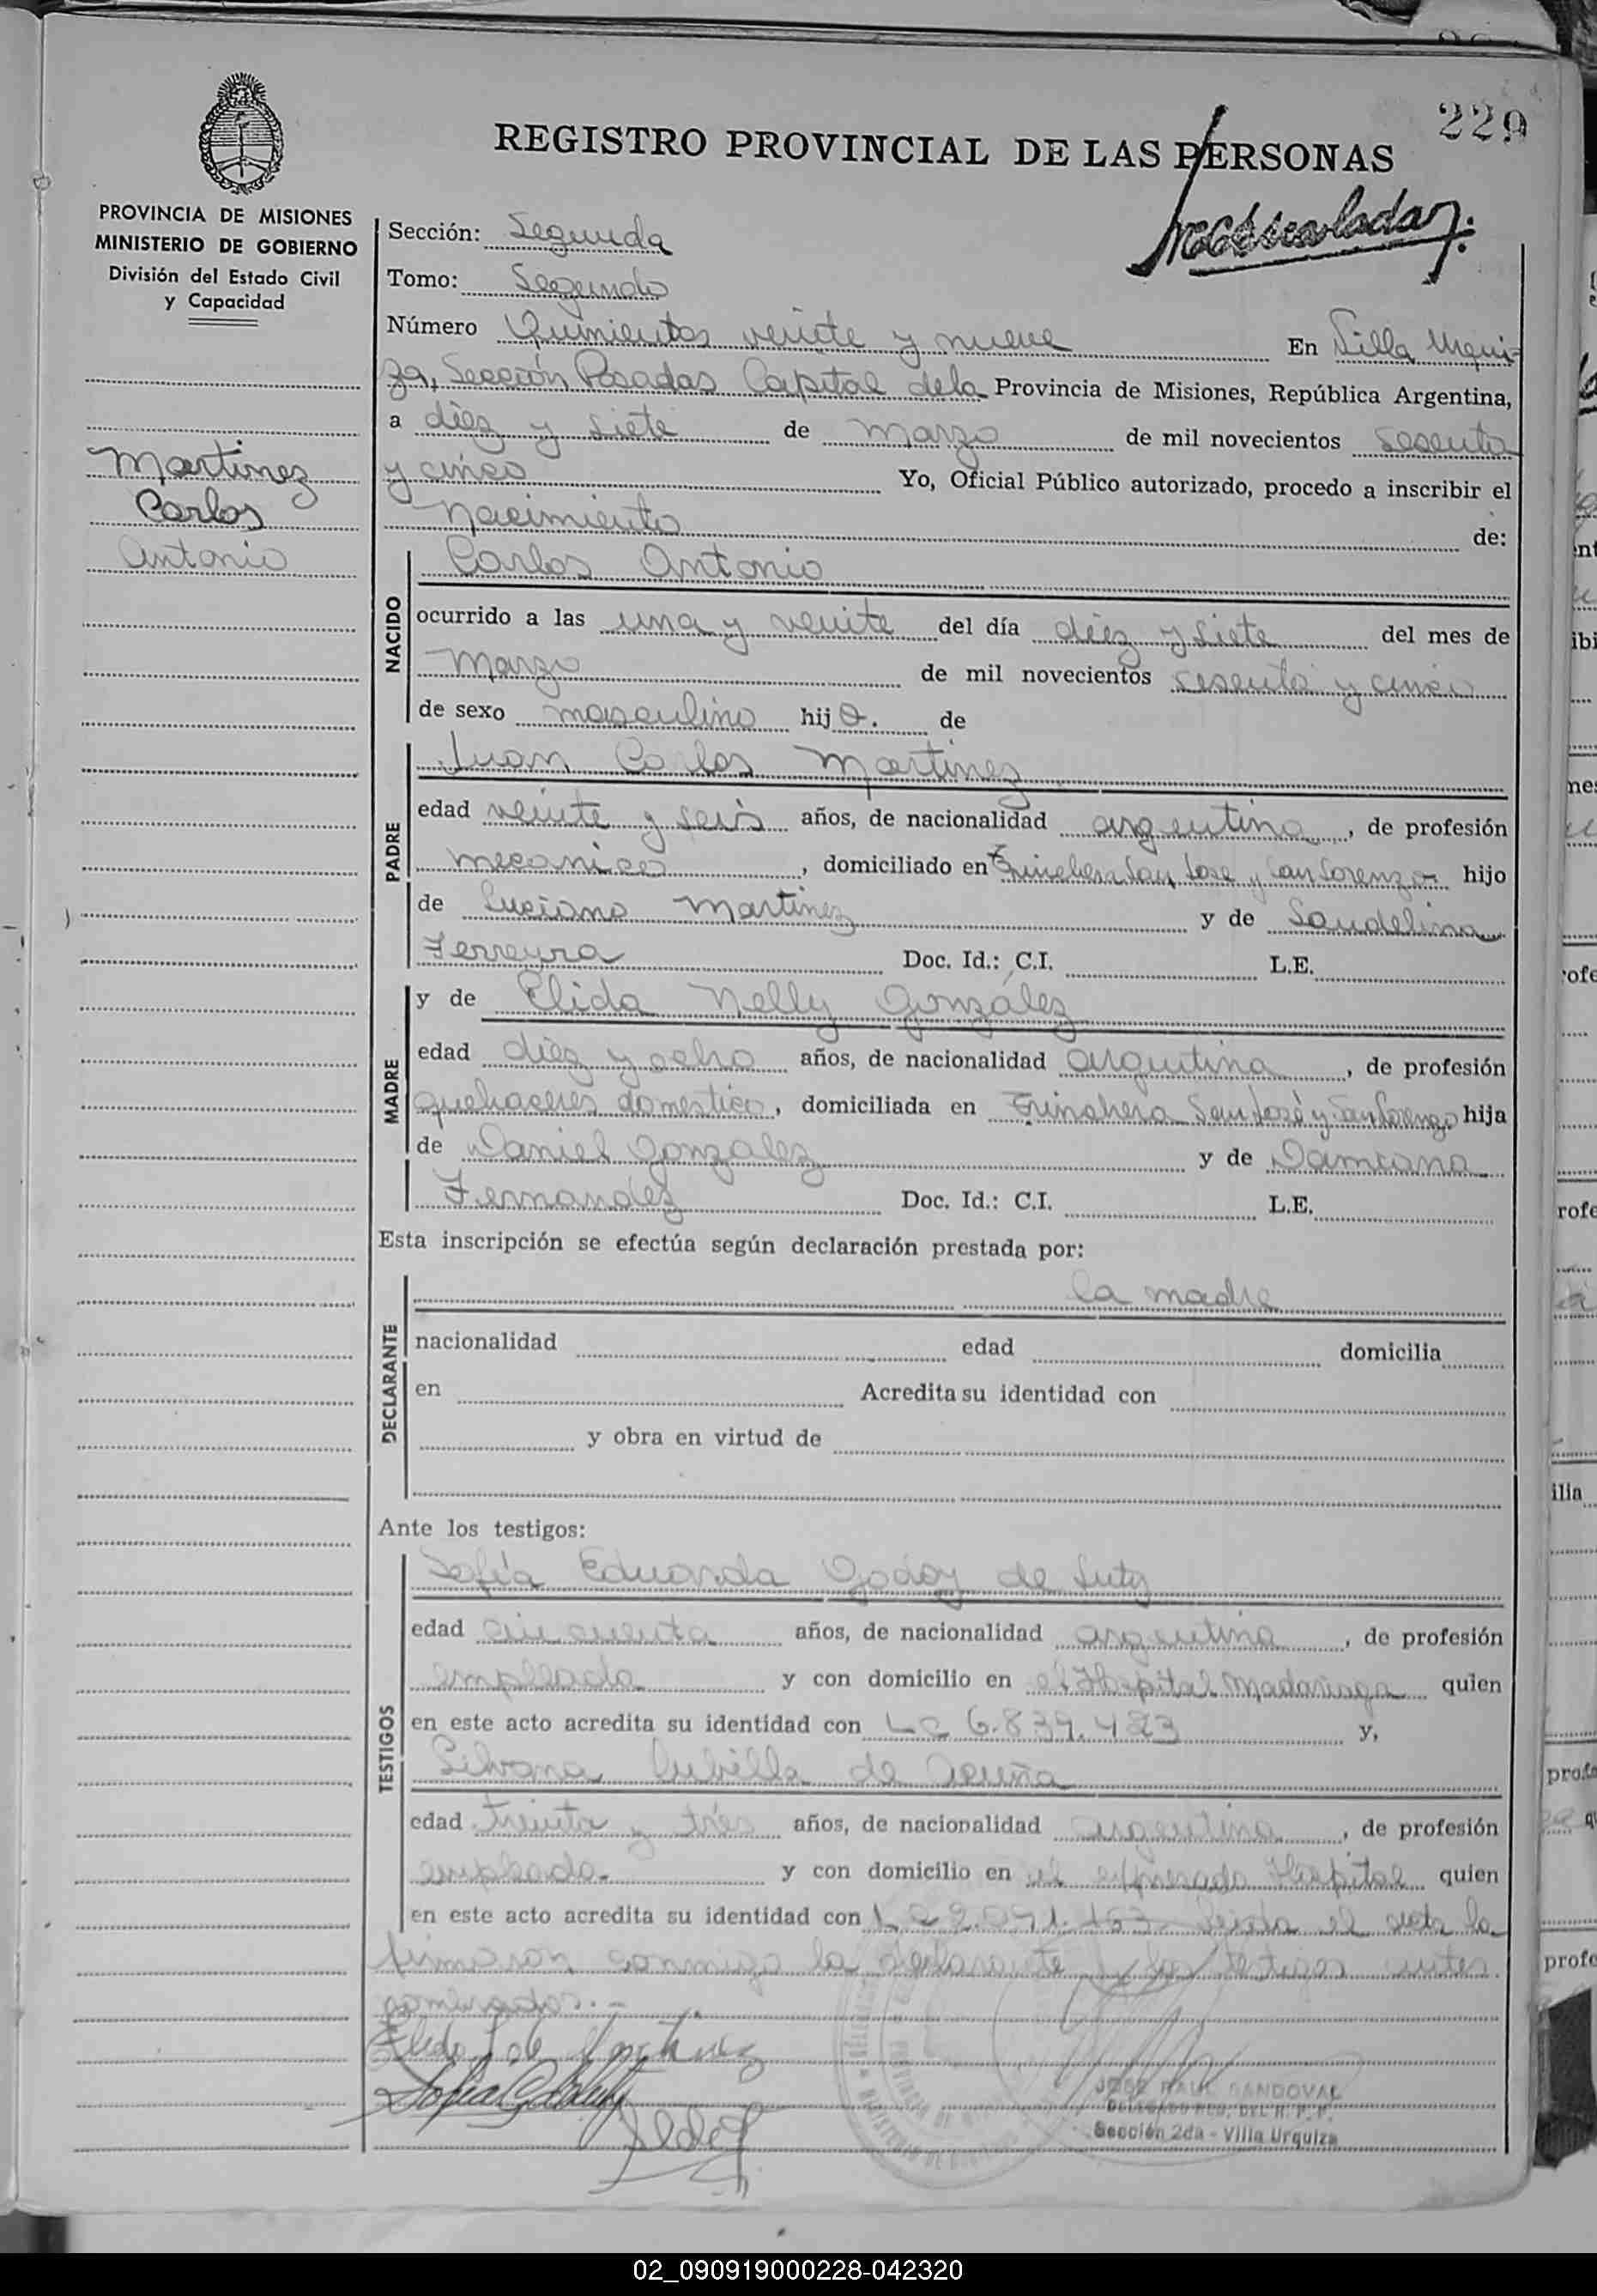 229
REGISTRO PROVINCIAL DE LAS PERSONAS
PROVINCIA DE MISIONES
MINISTERIO DE GOBIERNO
División del Estado Civil
y Capacidad
Martinez
Carlos
Antonio
Sección: Segunda
Tomo: Segundo
Número Quinientos veinte y nueve En Villa Urqui-
za, Sección Posadas Capital de la Provincia de Misiones, República Argentina,
a diez y siete de Marzo de mil novecientos sesenta
y cinco Yo, Oficial Público autorizado, procedo a inscribir el
Nacimiento de:
NACIDO
Carlos Antonio
ocurrido a las una y veinte del día diez y siete del mes de
Marzo de mil novecientos sesenta y cinco
de sexo masculino hijo. de
PADRE
Juan Carlos Martinez
edad veinte y seis años, de nacionalidad argentina, de profesión
mecanico, domiciliado en Trinchera San Jose y San Lorenzo hijo
de Luciano Martinez y de Saudelina
Ferreyra Doc. Id.: C.I. L.E.
MADRE
y de Elida Nelly González
edad diez y ocho años, de nacionalidad argentina, de profesión
quehaceres domestico, domiciliada en Trinchera San José y San Lorenzo hija
de Daniel Gonzalez y de Damiana
Fernandez Doc. Id.: C.I. L.E.
Esta inscripción se efectúa según declaración prestada por:
DECLARANTE
la madre
nacionalidad edad domicilia
en Acredita su identidad con
y obra en virtud de
Ante los testigos:
TESTIGOS
Sofia Eduarda Godoy de Luty
edad cincuenta años, de nacionalidad argentina, de profesión
empleada y con domicilio en el Hospital Madariaga quien
en este acto acredita su identidad con LC 6.839.423 y,
Silvana Cubilla de Acuña
edad treinta y tres años, de nacionalidad argentina, de profesión
empleada. y con domicilio en el expresado Hospital quien
en este acto acredita su identidad con LC Leida el acta la
firmaron conmigo la declarante y los testigos antes
nombrados.-
JOSE RAUL SANDOVAL
Sección 2da - Villa Urquiza
02_090919000228-042320